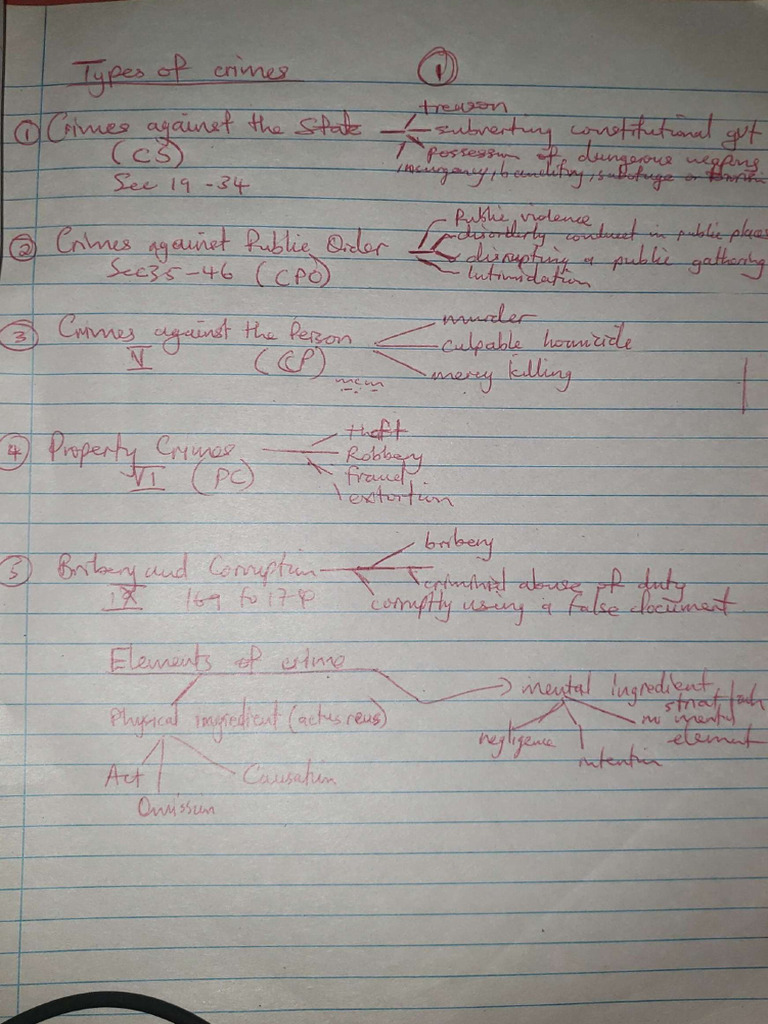 Types of crimes
①
① Crimes against the State
(CS)
Sec 19 - 34
treason
subverting constitutional gvt
possession of dangerous weapons
insurgency, banditry, sabotage or
② Crimes against Public Order
Sec 35 - 46 (CPO)
Public violence
disorderly conduct in public places
disrupting a public gathering
Intimidation
③ Crimes against the Person
V (CP)
mcm
murder
culpable homicide
mercy killing
④ Property Crimes
VI (PC)
theft
Robbery
fraud
extortion
⑤ Bribery and Corruption
IX 169 to 174
bribery
criminal abuse of duty
corruptly using a false document
Elements of crime
Physical ingredient (actus reus)
Act
Omission
Causation
mental ingredient
negligence
intention
strict
no mental
element